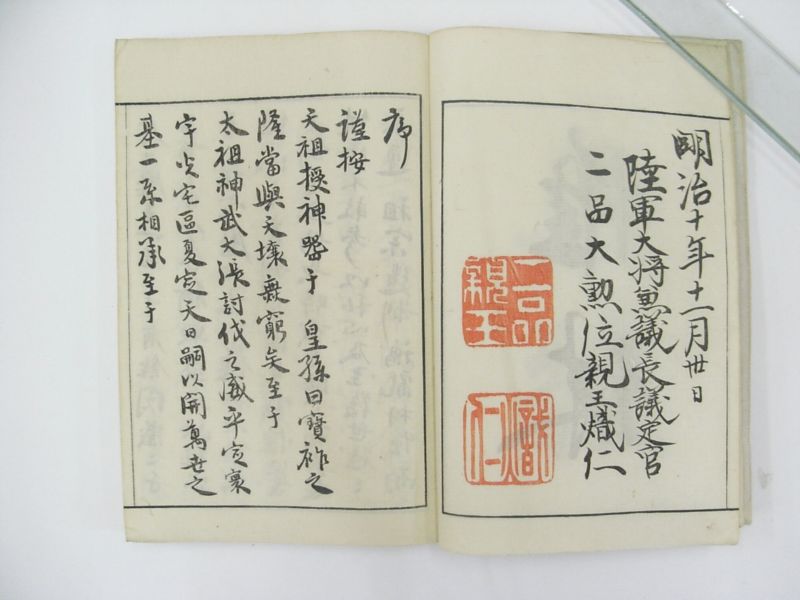 明治十年十一月卅日
陸軍大将兼議長議定官
二品大勲位親王熾仁
二品
親王
熾
仁
序
謹按
天祖授神器于 皇孫曰寶祚之
隆當與天壤無窮矣至于
太祖神武大張討伐之威平定寰
宇光宅區夏定天日嗣以開萬世之
基一系相承至于